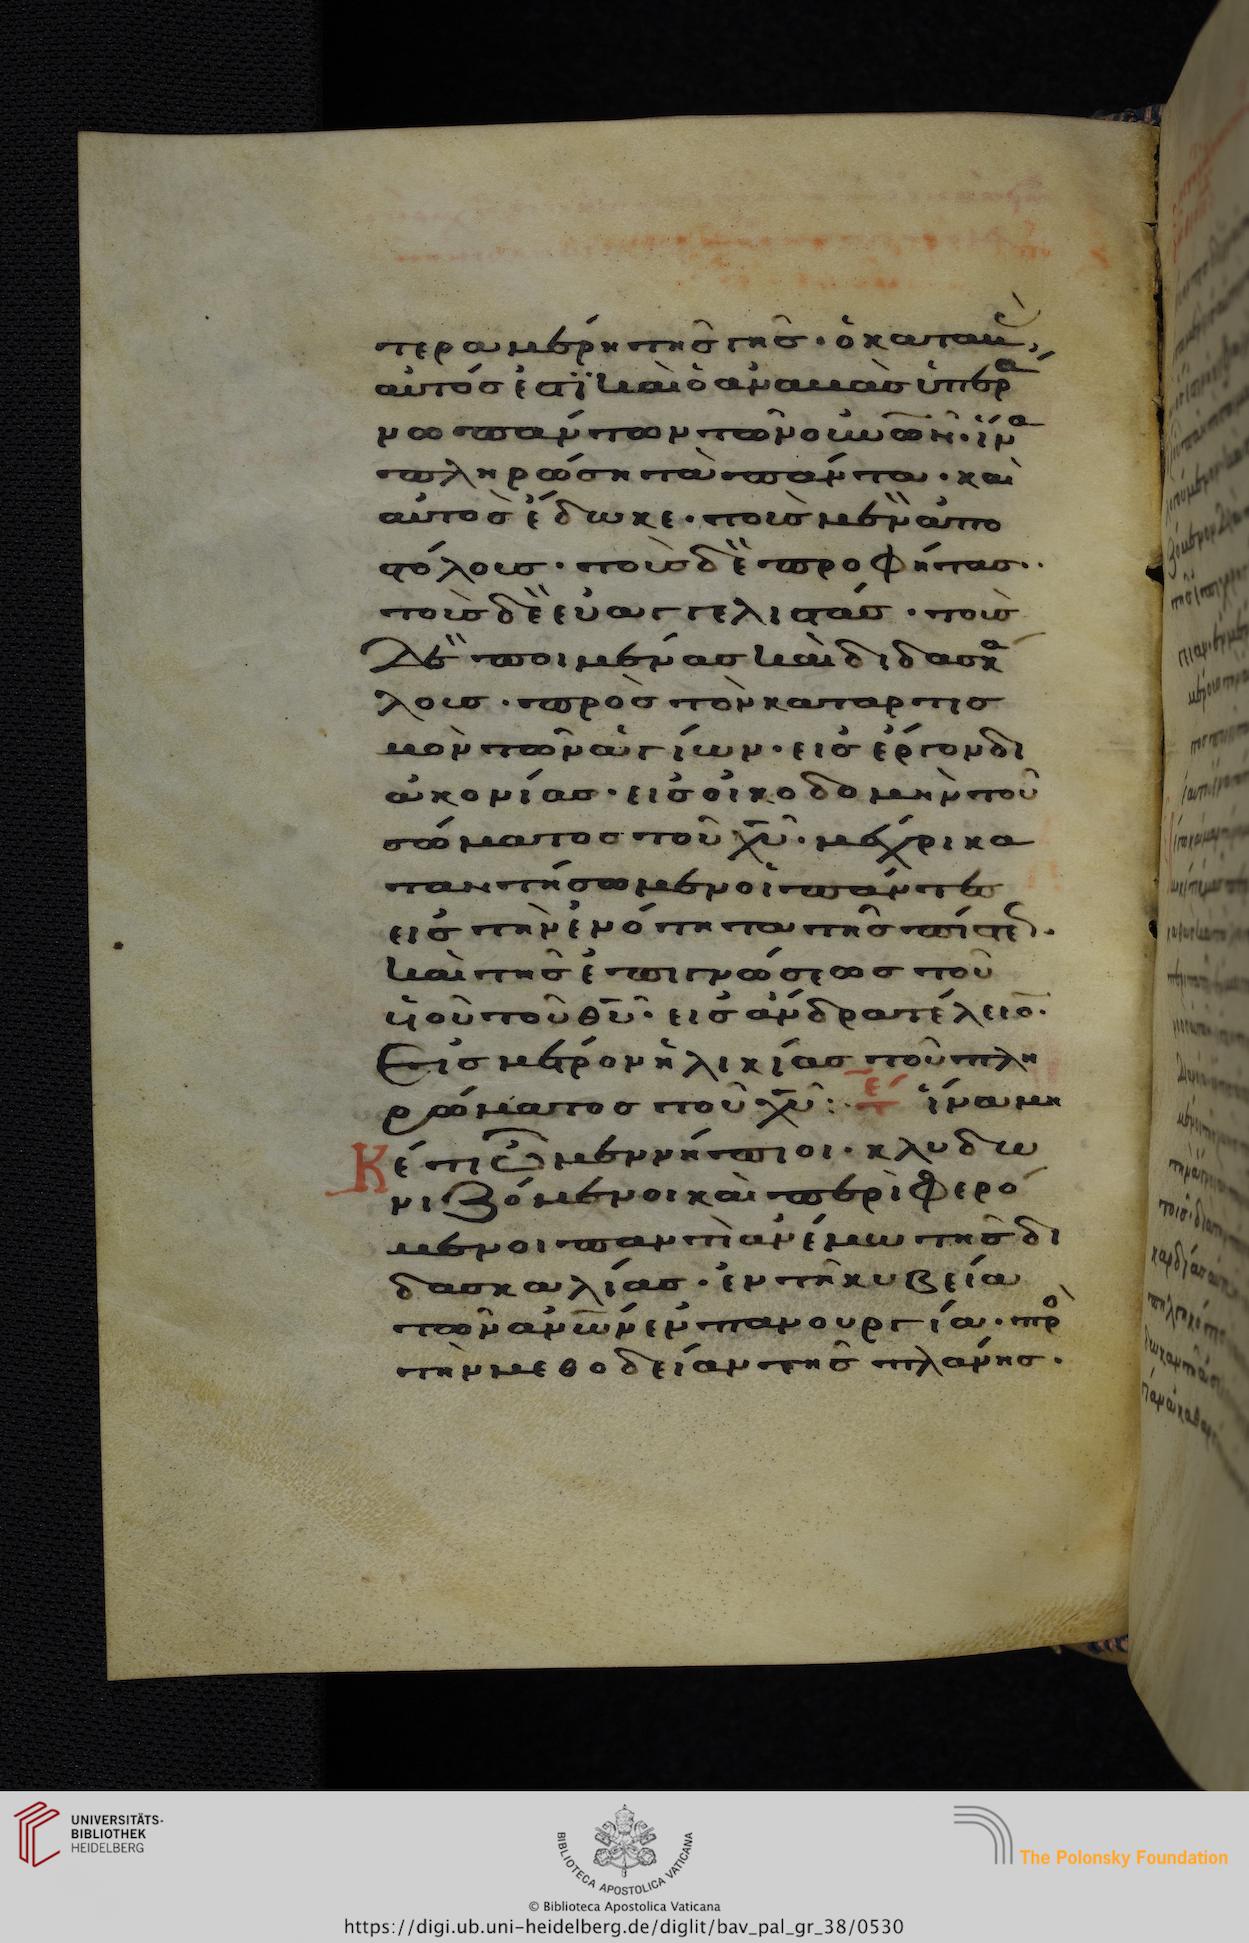 τερα μέρη τῆς γῆς· ὁ καταβὰς,
αὐτός ἐστϊ καὶ ὁ ἀναβὰς ὑπερά
νω πάντων τῶν οὐνῶν· ἵνα
πληρώση τὰ πάντα· καὶ
αὐτὸς ἔδωκε· τοὺς μὲν ἀπο
στόλους· τοὺς δὲ προφήτας·
τοὺς δὲ εὐαγγελιστάς· τοὺς
δὲ ποιμένας καὶ διδασκά
λους· πρὸς τὸν καταρτισ
μὸν τῶν ἁγίων· εἰς ἔργον δι
ακονίας· εἰς οἰκοδομὴν τοῦ
σώματος τοῦ χῦ· μέχρι κα
ταντήσωμεν οἱ πάντες
εἰς τὴν ἑνότητα τῆς πίστεως·
καὶ τῆς ἐπιγνώσεως τοῦ
ὑοῦ τοῦ θῦ· εἰς ἄνδρα τέλειον·
εἰς μέτρον ἡλικίας τοῦ πλη
ρώματος τοῦ χῦ: τέ ἵνα μη
Κέτι ὦμεν νήπιοι· κλυδω
νιζόμενοι καὶ περιφερό
μενοι παντὶ ἀνέμω τῆς δι
δασκαλίας· ἐν τῆ κυβεία
τῶν ἀνῶν ἐν πανουργία· πρὸ
τὴν μεθοδείαν τῆς πλάνης·
UNIVERSITÄTS-
BIBLIOTHEK
HEIDELBERG
BIBLIOTECA APOSTOLICA VATICANA
The Polonsky Foundation
© Biblioteca Apostolica Vaticana
https://digi.ub.uni-heidelberg.de/diglit/bav_pal_gr_38/0530